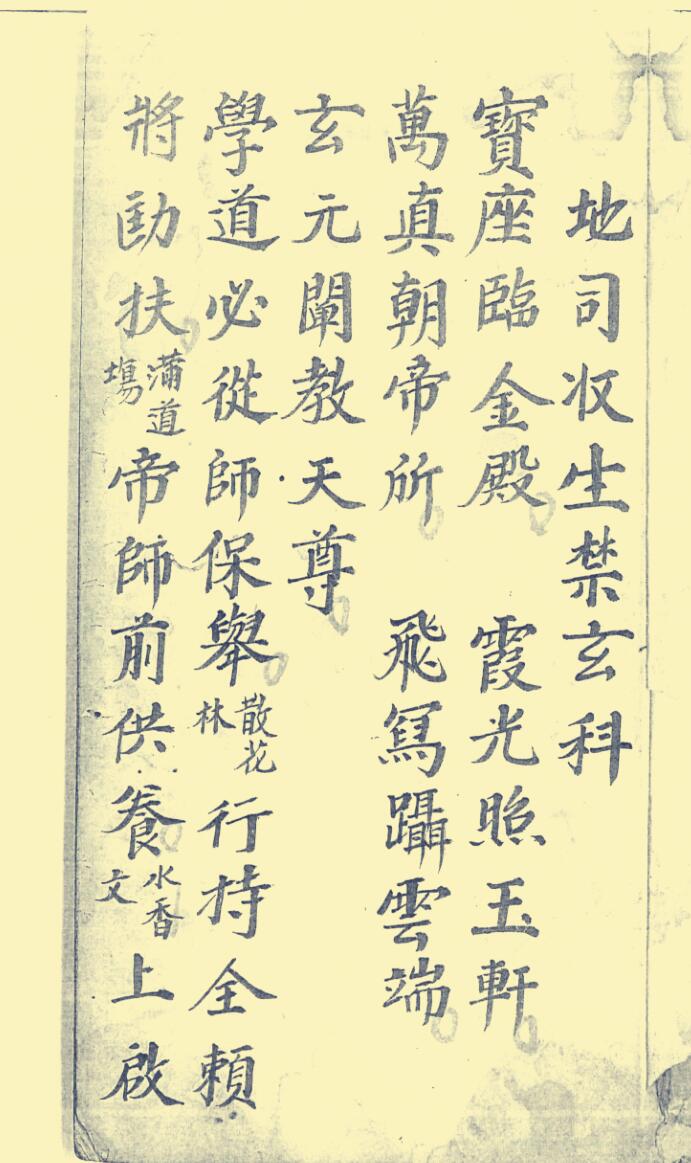 地司収生禁玄科
寶座臨金殿 霞光照玉軒
萬真朝帝所 飛舄躡雲端
玄元闡教天尊
學道必從師保舉散花林行持全賴
將劻扶滿道塲帝師前供養水香文上啟